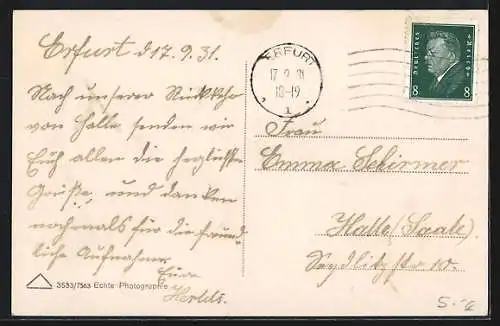 Erfurt d 17.9.31.
Nach unserer Rückkehr
von Halle senden wir
Euch allen die herzlichste
Grüße, und danken
nochmals für die freund-
liche Aufnahme
Eure
ERFURT
17.9.31
18-19
1
DEUTSCHES
REICH
8 8
Frau
Emma Schirmer
Halle (Saale).
Seydlitzstr 10.
3583/7563 Echte Photographie
5.-